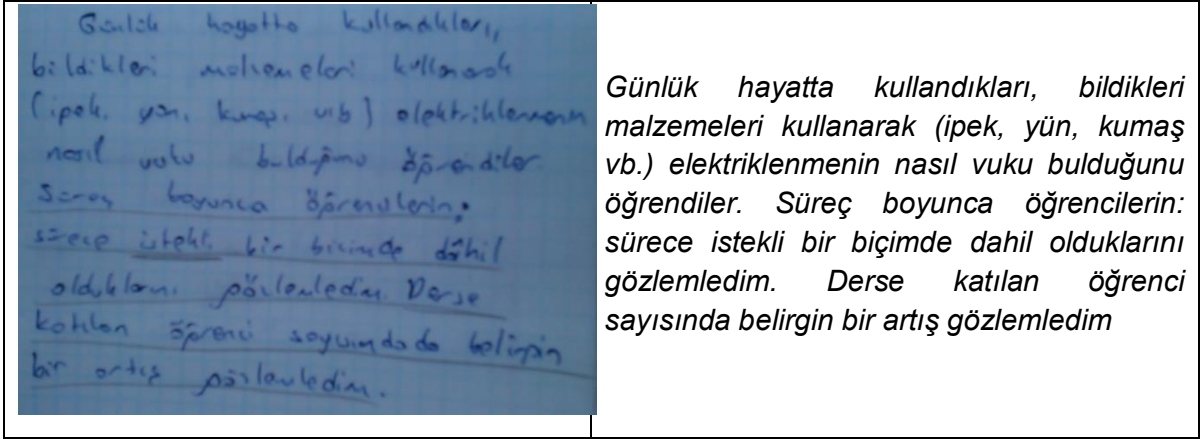 Günlük hayatta kullandıkları,
bildikleri malzemeleri kullanarak
(ipek, yün, kumaş, vb) elektriklenmenin
nasıl vuku bulduğunu öğrendiler.
Süreç boyunca öğrencilerin;
sürece istekli bir biçimde dâhil
olduklarını gözlemledim. Derse
katılan öğrenci sayısında da belirgin
bir artış gözlemledim.
Günlük hayatta kullandıkları, bildikleri
malzemeleri kullanarak (ipek, yün, kumaş
vb.) elektriklenmenin nasıl vuku bulduğunu
öğrendiler. Süreç boyunca öğrencilerin:
sürece istekli bir biçimde dahil olduklarını
gözlemledim. Derse katılan öğrenci
sayısında belirgin bir artış gözlemledim